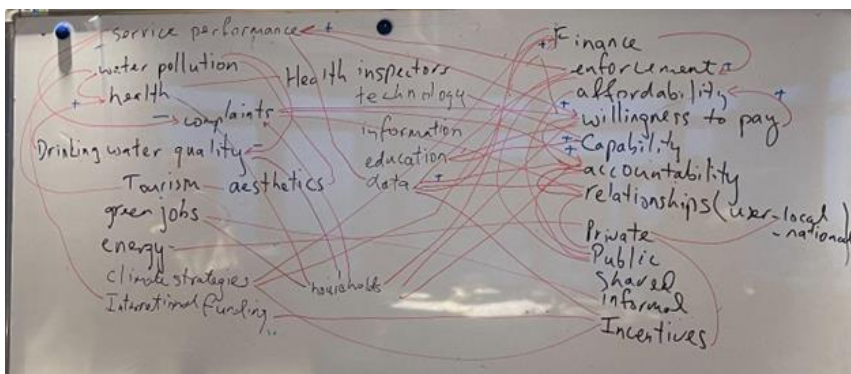 service performance
water pollution
health
complaints
Drinking water quality
Tourism aesthetics
green jobs
energy
Climate strategies
International funding
Health inspectors
technology
information
education
data
households
Finance
enforcement
affordability
willingness to pay
Capability
accountability
relationships (user-local
-national)
Private
Public
Shared
informal
Incentives